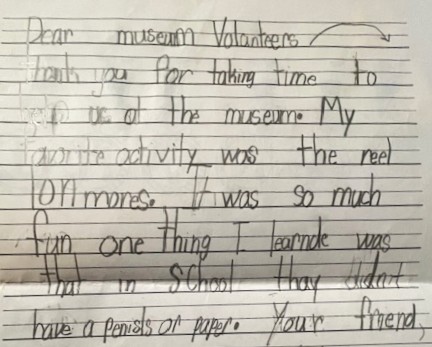 Dear museum Volanteers
thank you for taking time to
help us at the museum. My
favorite activity was the reel
lon mores. It was so much
fun one thing I learnde was
that in school thay didn't
have a penisls or paper. Your friend,